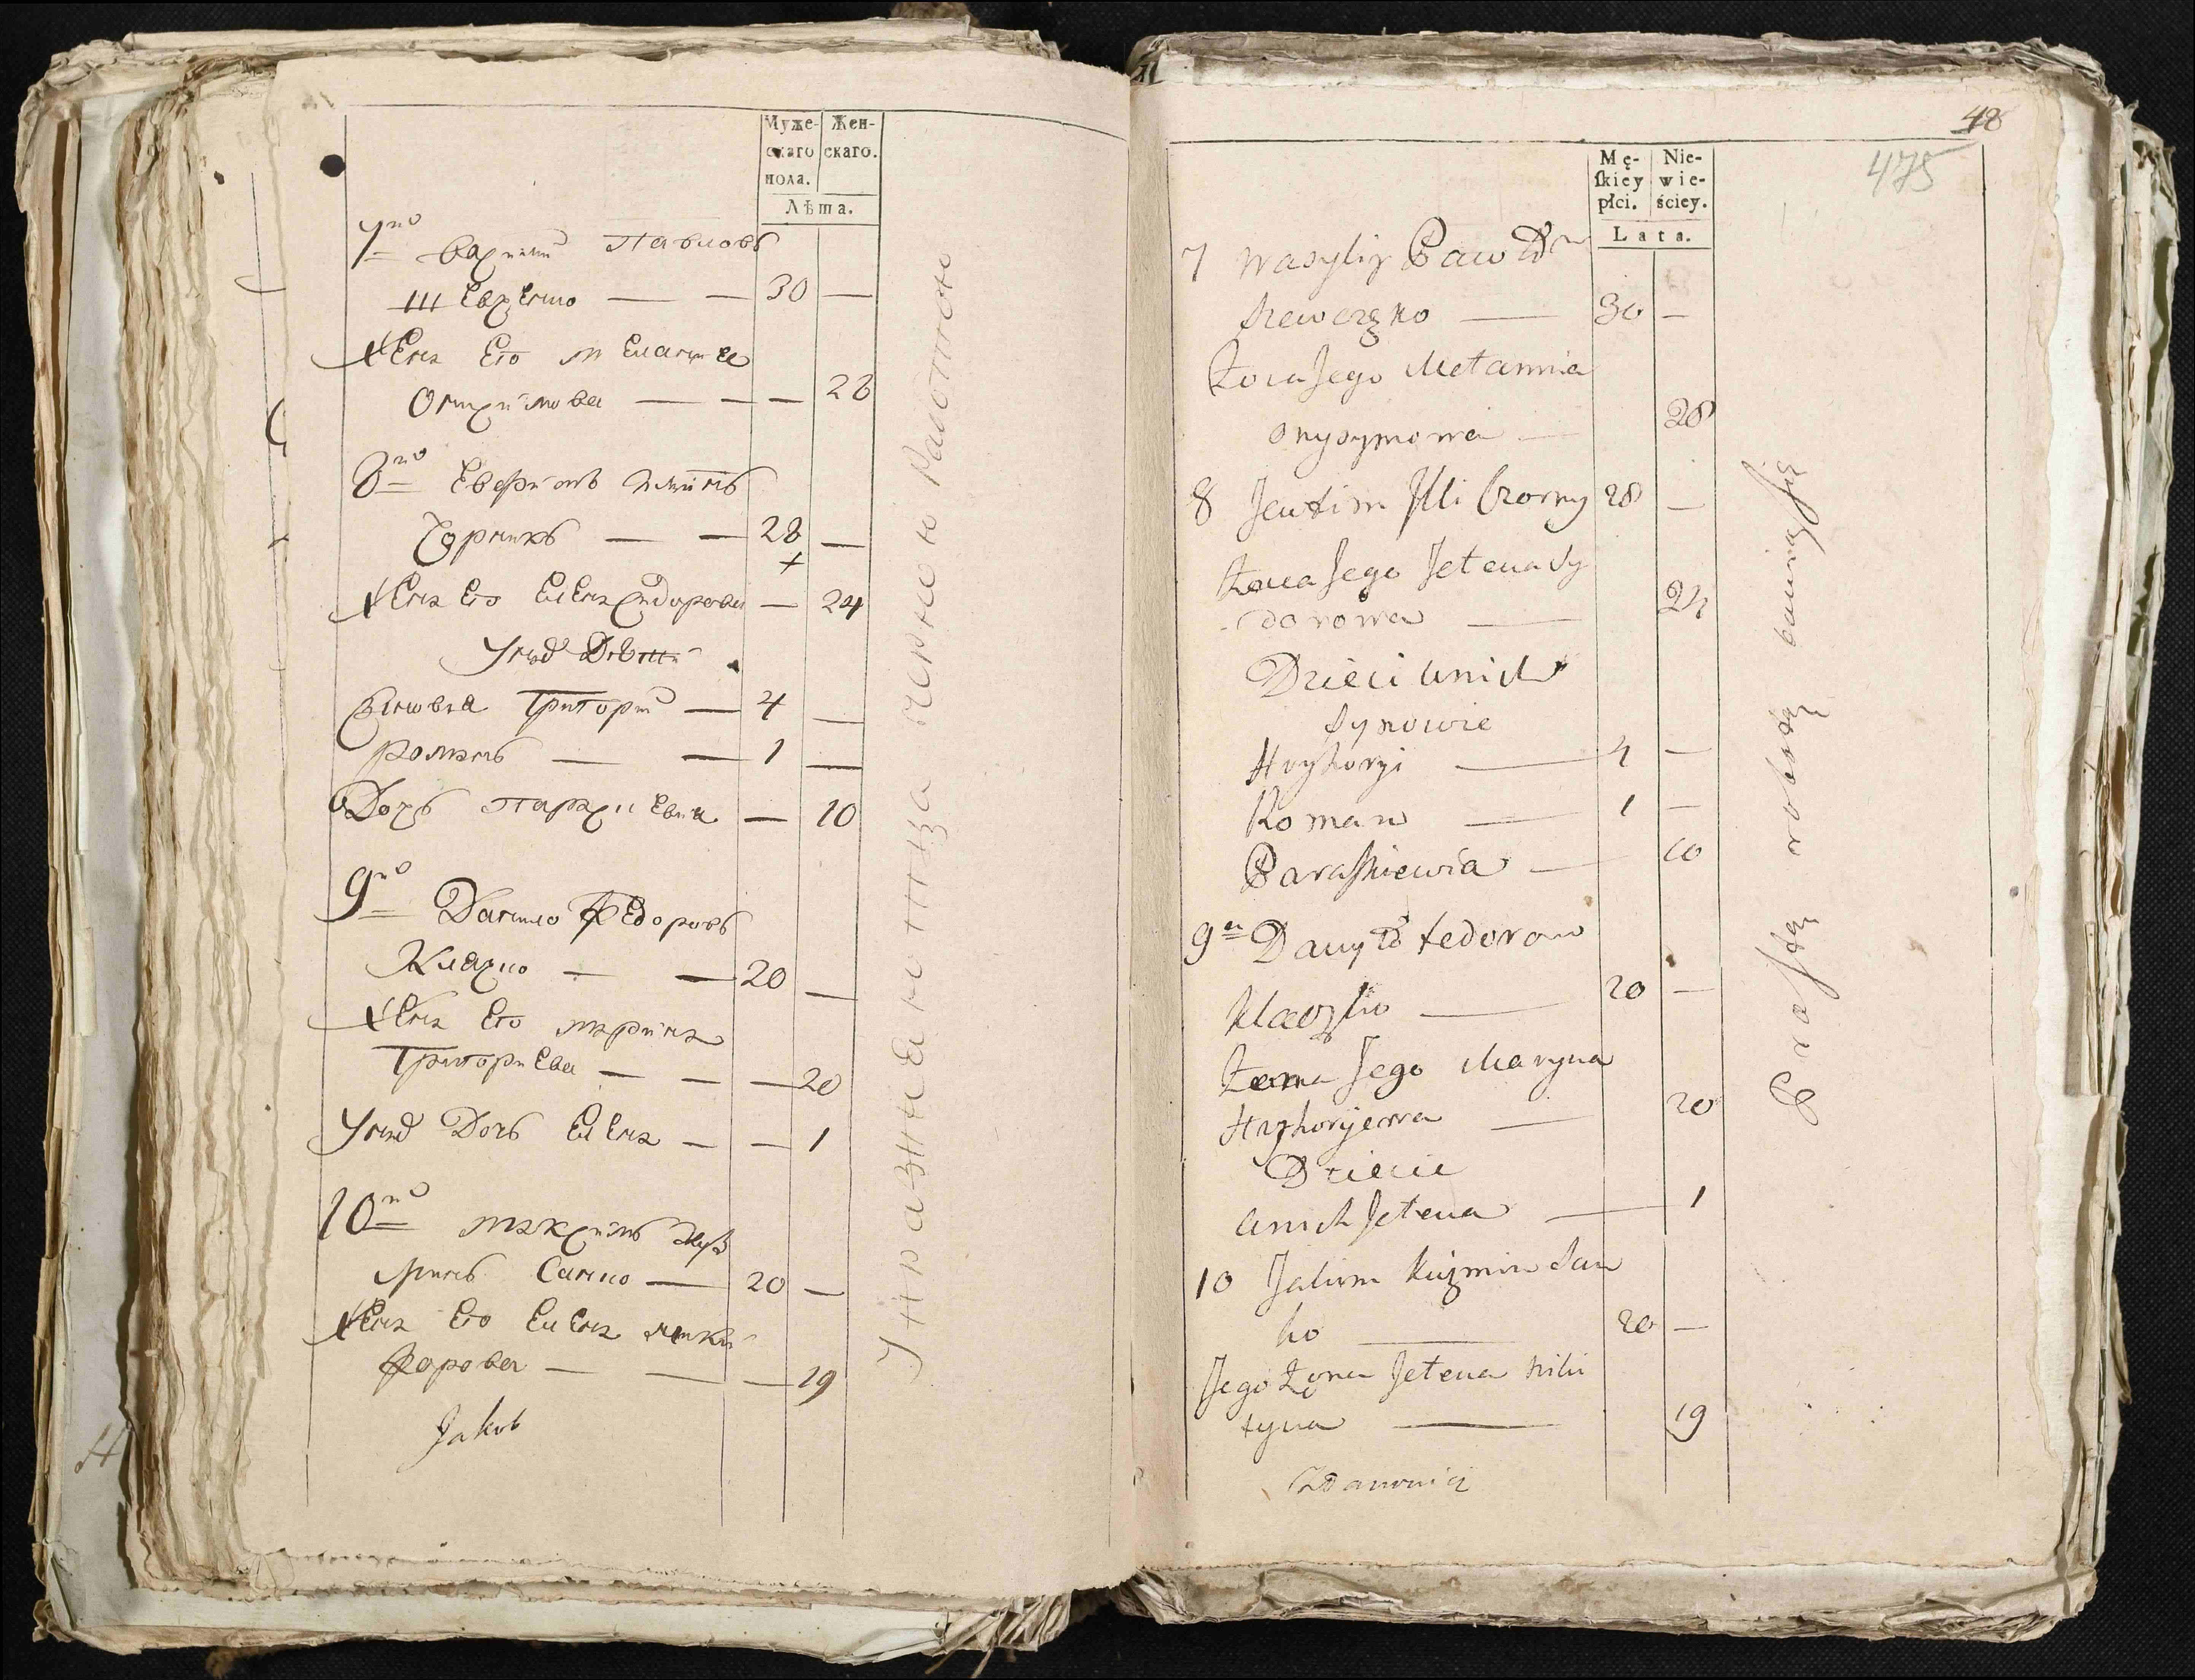 Муже-
скаго
пола.
Жен-
скаго.
Лѣта.
7го Василий Павловъ
Шевченко — — 30 —
Жена Его Меланиа
Онисимова — — — 28
8го Евфимъ Илиинъ
Чорникъ — — 28 —
+
Жена Его Елена Сидорова — 24
У нихъ Дѣти
Сыновья Григорий — 4 —
Романъ — — 1 —
Дочь Параскиевиа — 10
9го Данило Федоровъ
Кла — — 20 —
Жена Его Марина
Григориева — — — 20
У нихъ Дочь Елена — — 1
10го Кузь
минъ Санко — 20 —
Жена Его Елена Ники
форова — — — 19
Jakub
Упражняются чорною работою
48
475
Mę-
ſkiey
płci.
Nie-
wie-
ściey.
Lata.
7 Wasyliy Pawłow
Szewczęko — 30 —
Żona Jego Mełannia
Onysymowa — 28
8 Jeufim Illi Czorny 28 —
Żona Jego Jełena Sy
dorowa — 24
Dzieci u nich
Synowie
Hryhoryi — 4 —
Roman — 1 —
Paraſkiewia — 10
9 Danyło Fedorow
— 20 —
Żona Jego Maryna
Hryhoryjewa — 20
Dziecie
u nich Jełena — 1
10 Kuzmin San
ko — 20 —
Jego Żona Jełena Niki
— 19
Prostą robotą bawią się